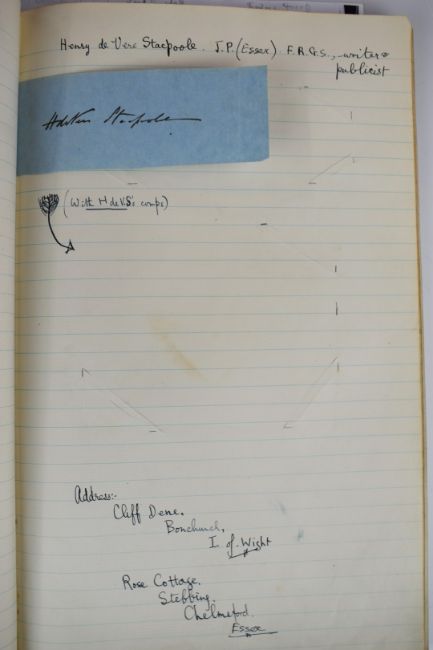 Henry de Vere Stacpoole. J.P. (Essex) F.R.G.S., writer &
publicist
H de Vere Stacpoole
(With H de V.S's comps)
Address:-
Cliff Dene,
Bonchurch,
I. of Wight
Rose Cottage.
Stebbing.
Chelmsford.
Essex